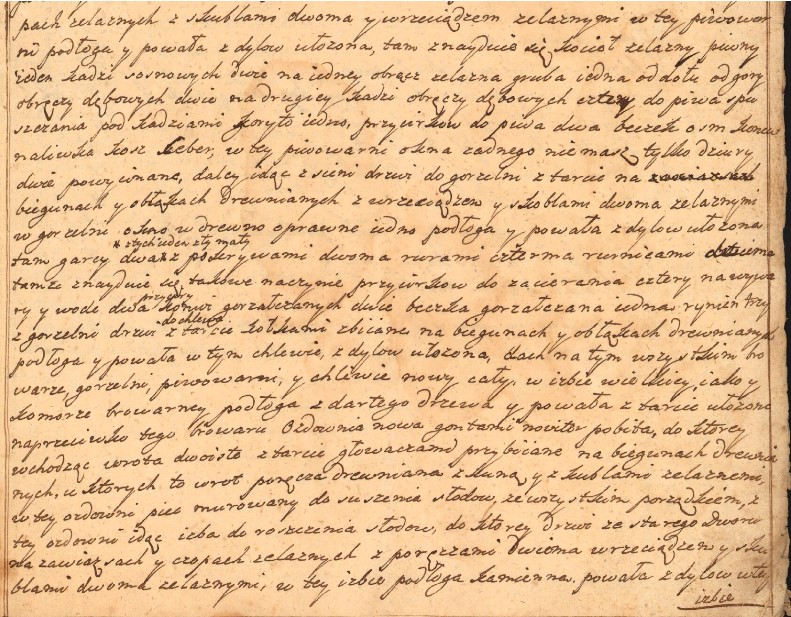 pach zelaznych z skublami dwoma y wrzeciądzem zelaznymi w tey piwowar
ni podłoga y powała z dylow ułozona, tam znayduie się kocieł zelazny piwny
ieden kadzi sosnowych dwie na iedney obręcz zelazna gruba iedna od dołu od gory
obręczy dębowych dwie na drugiey kadzi obręczy dębowych cztery do piwa spu
szczania pod kadziami koryto iedno, przycirkow do piwa dwa beczek osm konew
naliwska kosz ceber, w tey piwowarni okna zadnego nie masz tylko dziury
dwie powycinane, daley idąc z sieni drzwi do gorzelni z tarcic na
biegunach y obłąkach drewnianych z wrzeciądzem y skoblami dwoma zelaznymi
w gorzelni okno w drewno oprawne iedno podłoga y powała z dylow ułozona
* z tych ieden zły mały
tam garcy dwa z pokrywami dwoma rurami czterma rurnicami dwiema
tamze znayduie się takowe naczynie przycirkow do zacierania cztery na wywa
ry y wode dwa przykry konwi gorzałczanych dwie beczka gorzałczana iedna rynien trzy
z gorzelni drzwi do chlewa z tarcic kołkami zbiiane na biegunach y obłąkach drewnianych
podłoga y powała w tym chlewie, z dylow ułozona, dach na tym wszystkim bro
warze, gorzelni, piwowarni, y chlewie nowy cały. w izbie wielkiey, iako y
komorze browarney podłoga z dartego drzewa y powała z tarcic ułozona
naprzeciwko tego browaru Ozdownia nowa gontami noviter pobita, do ktorey
wchodząc wrota dwoiste z tarcic głowaczami przybiiane na biegunach drewnia
nych, u ktorych to wrot poręcza drewniana z kuną y z skublami zelaznemi,
w tey ozdowni piec murowany do suszenia słodow, ze wszystkim porządkiem, z
tey ozdowni idąc izba do roszczenia słodow, do ktorey drzwi ze starego dworu
na zawiasach y czopach zelaznych z poręczami dwoma wrzeciądzem y sku
blami dwoma zelaznymi, w tey izbie podłoga kamienna. powała z dylow w tey
izbie